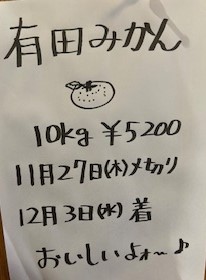 有田みかん
10kg ¥5200
11月27日(木)〆切り
12月3日(水)着
おいしいよォ〜♪